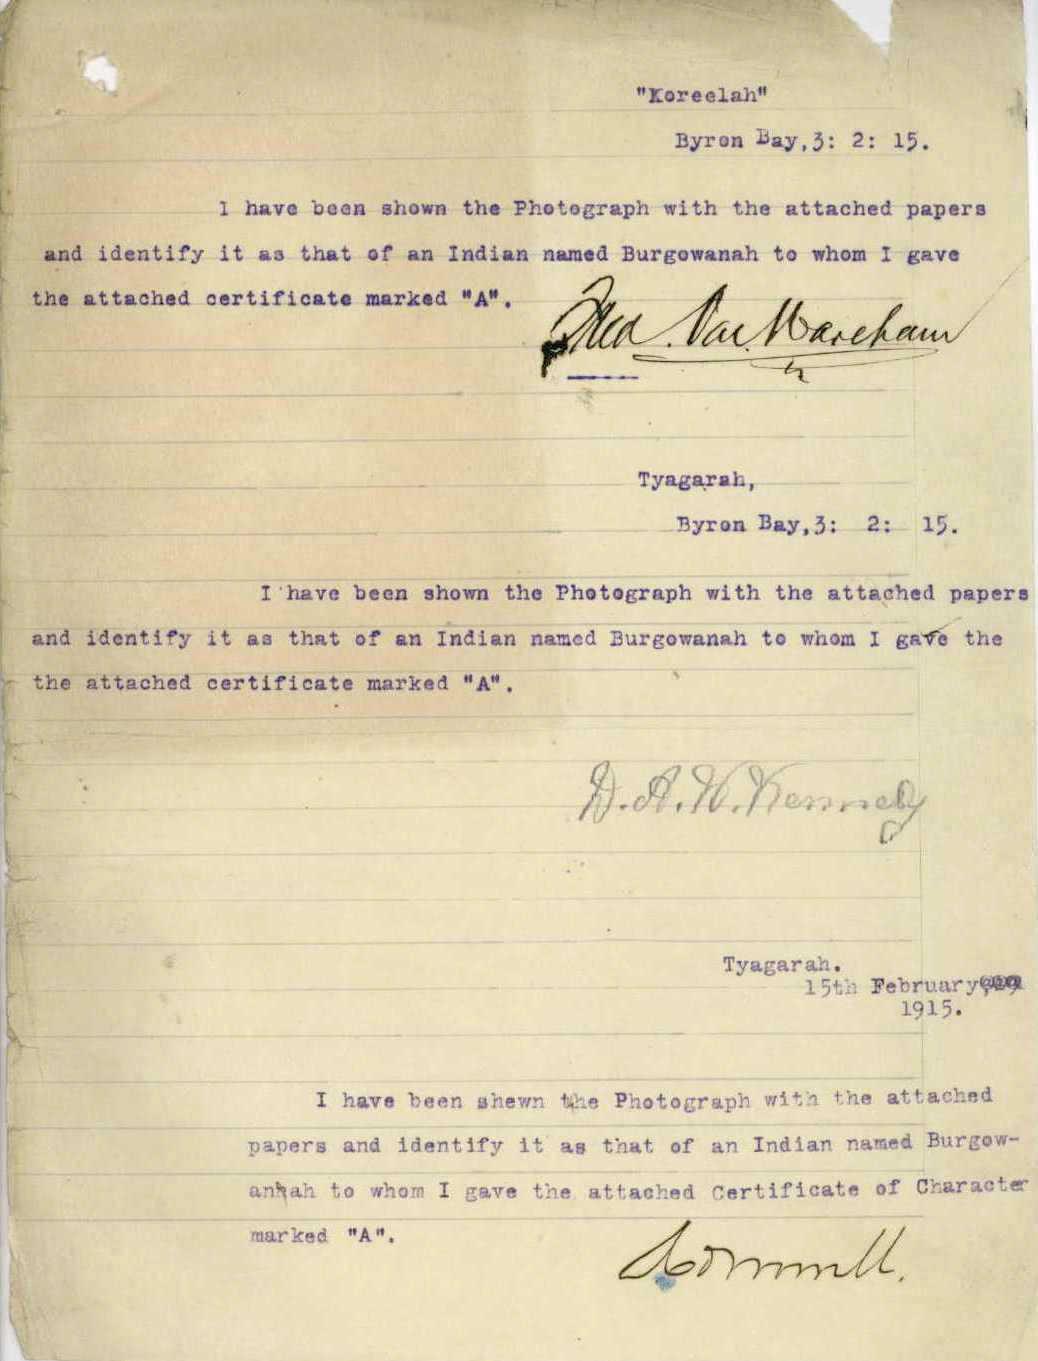 "Koreelah"
Byron Bay,3: 2: 15.
I have been shown the Photograph with the attached papers
and identify it as that of an Indian named Burgowanah to whom I gave
the attached certificate marked "A".
Tyagarah,
Byron Bay,3: 2: 15.
I have been shown the Photograph with the attached papers
and identify it as that of an Indian named Burgowanah to whom I gave the
the attached certificate marked "A".
D. A. W. Kennedy
Tyagarah.
15th February,
1915.
I have been shewn the Photograph with the attached
papers and identify it as that of an Indian named Burgow-
anhah to whom I gave the attached Certificate of Character
marked "A".